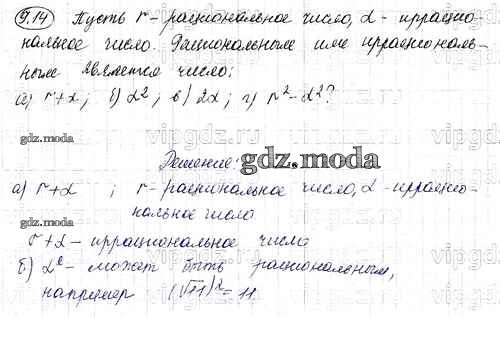 9.14 Пусть r - рациональное число, α - иррацио-
нальное число. Рациональным или иррациональ-
ным является число:
а) r+α; б) α²; в) 2α; г) r²-α²?
gdz.moda
Решение:
gdz.moda
а) r+α ; r-рациональное число, α-иррацио-
нальное число
gdz.moda
r+α - иррациональное число
б) α² - может быть рациональным,
например (√11)² = 11